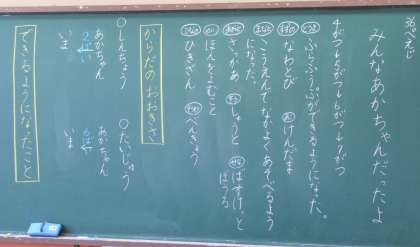 36ぺえじ
みんなあかちゃんだったよ
4がつ→5がつ→6がつ→7がつ
ふらふうぷができるようになった。
なわとび
けんだま
こうえんでなかよくあそべるよう
になった。
さいがあ
しょうと
ばすけっと
ぼうる
ほんをよむこと
ひきざん
べんきょう
からだのおおきさ
○しんちょう
あかちゃん
2ばい
いま
○たいじゅう
あかちゃん
6ばい
いま
できるようになったこと